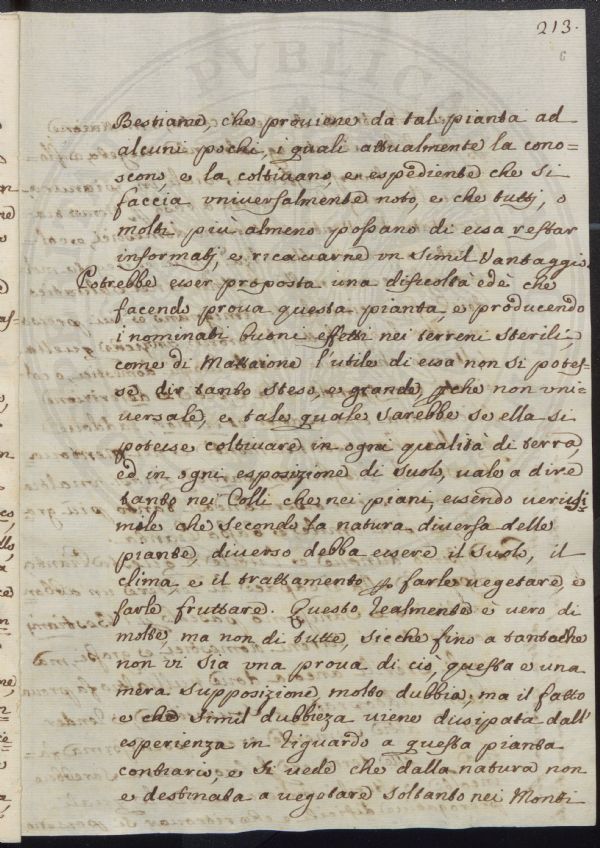 213.
6
PVBLICA
Bestiame, che proviene da tal pianta ad
alcuni pochi, i quali attualmente la cono=
scono, e la coltivano, e espediente che si
faccia universalmente noto, e che tuttj, o
molti più almeno possano di essa restar
informatj, e ricavarne un simil Vantaggio.
Potrebbe esser proposta una dificoltà ed è che
facendo prova questa pianta, e producendo
i nominati buoni effetti nei terreni sterili,
come di Mattaione l'utile di essa non si potes=
se dir tanto steso, e grande, pche non vni=
versale, e tale quale sarebbe se ella si
potesse coltivare in ogni qualità di terra,
ed in ogni esposizione di suolo, vale a dire
tanto nei Colli che nei piani, essendo verisi
mile che secondo la natura diversa delle
piante, diverso debba essere il suolo, il
clima, e il trattamento p farle vegetare, e
farle fruttare. Questo realmente è vero di
molte, ma non di tutte, sicche fino a tantoche
non vi sia una prova di ciò, questa e una
mera supposizione molto dubbia; ma il fatto
e che simil dubbieza viene dissipata dall'
esperienza in riguardo a questa pianta
contrario, e si vede che dalla natura non
e destinata a vegetare soltanto nei Monti